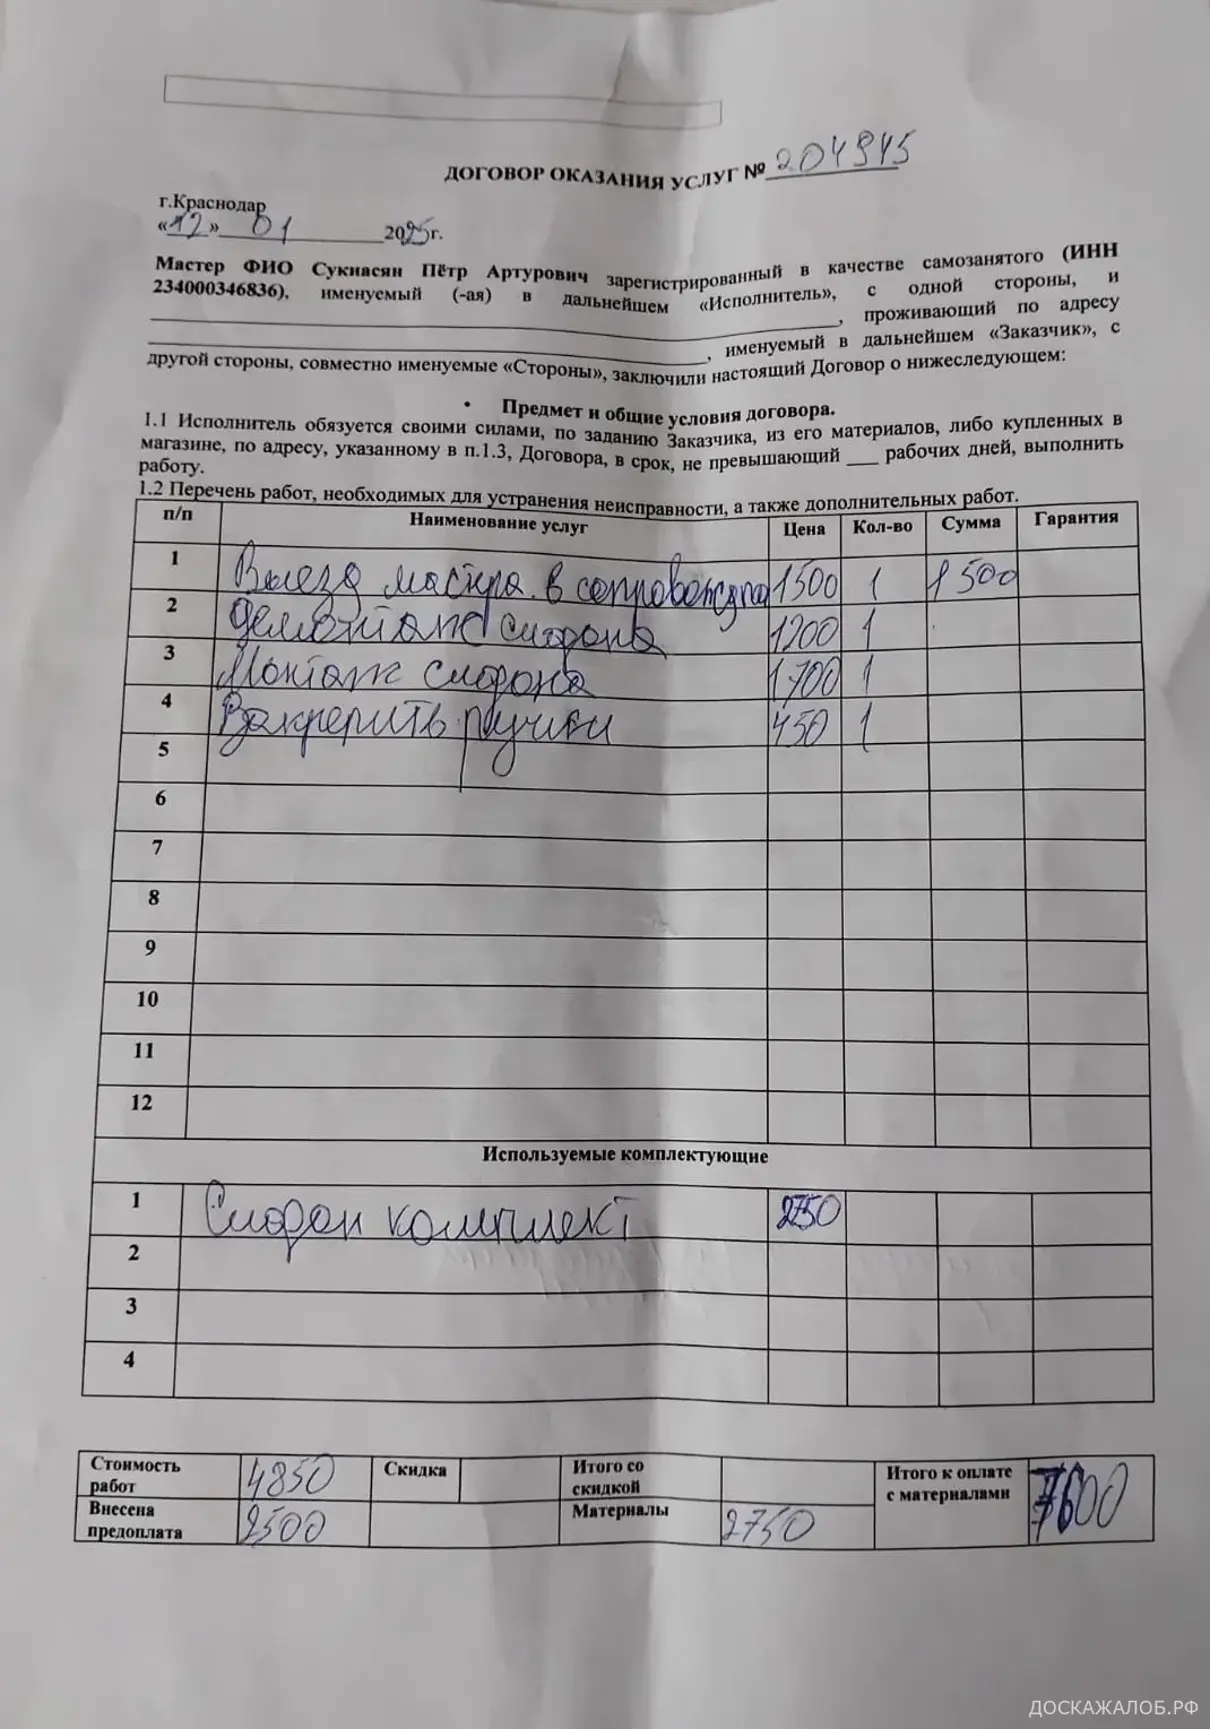 ДОГОВОР ОКАЗАНИЯ УСЛУГ № 204945
г.Краснодар
«12» 01 2025г.
Мастер ФИО Сукиасян Пётр Артурович зарегистрированный в качестве самозанятого (ИНН
234000346836), именуемый (-ая) в дальнейшем «Исполнитель», с одной стороны, и
, проживающий по адресу
, именуемый в дальнейшем «Заказчик», с
другой стороны, совместно именуемые «Стороны», заключили настоящий Договор о нижеследующем:
• Предмет и общие условия договора.
1.1 Исполнитель обязуется своими силами, по заданию Заказчика, из его материалов, либо купленных в
магазине, по адресу, указанному в п.1.3, Договора, в срок, не превышающий ___ рабочих дней, выполнить
работу.
1.2 Перечень работ, необходимых для устранения неисправности, а также дополнительных работ.
п/п Наименование услуг Цена Кол-во Сумма Гарантия
1 Выезд мастера в 1500 1 1500
2 Демонтаж сифона 1200 1
3 Монтаж сифона 1700 1
4 Закрепить ручки 450 1
5
6
7
8
9
10
11
12
Используемые комплектующие
1 Сифон комплект 2750
2
3
4
Стоимость работ 4850 Скидка Итого со скидкой Итого к оплате с материалами 7600
Внесена предоплата 2500 Материалы 2750
ДОСКАЖАЛОБ.РФ